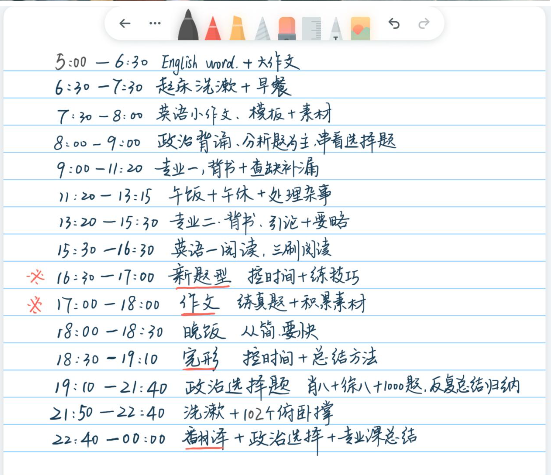 5:00 — 6:30 English word. + 大作文
6:30 — 7:30 起床洗漱 + 早餐
7:30 — 8:00 英语小作文、模板 + 素材
8:00 — 9:00 政治背诵、分析题为主、串看选择题
9:00 — 11:20 专业一, 背书 + 查缺补漏
11:20 — 13:15 午饭 + 午休 + 处理杂事
13:20 — 15:30 专业二·背书、引论 + 要略
15:30 — 16:30 英语一阅读, 三刷阅读
※ 16:30 — 17:00 新题型 控时间 + 练技巧
※ 17:00 — 18:00 作文 练真题 + 积累素材
18:00 — 18:30 晚饭 从简.要快
18:30 — 19:10 完形 控时间 + 总结方法
19:10 — 21:40 政治选择题 肖八 + 徐八 + 1000题、反复总结归纳
21:50 — 22:40 洗漱 + 102个俯卧撑
22:40 — 00:00 翻译 + 政治选择 + 专业课总结